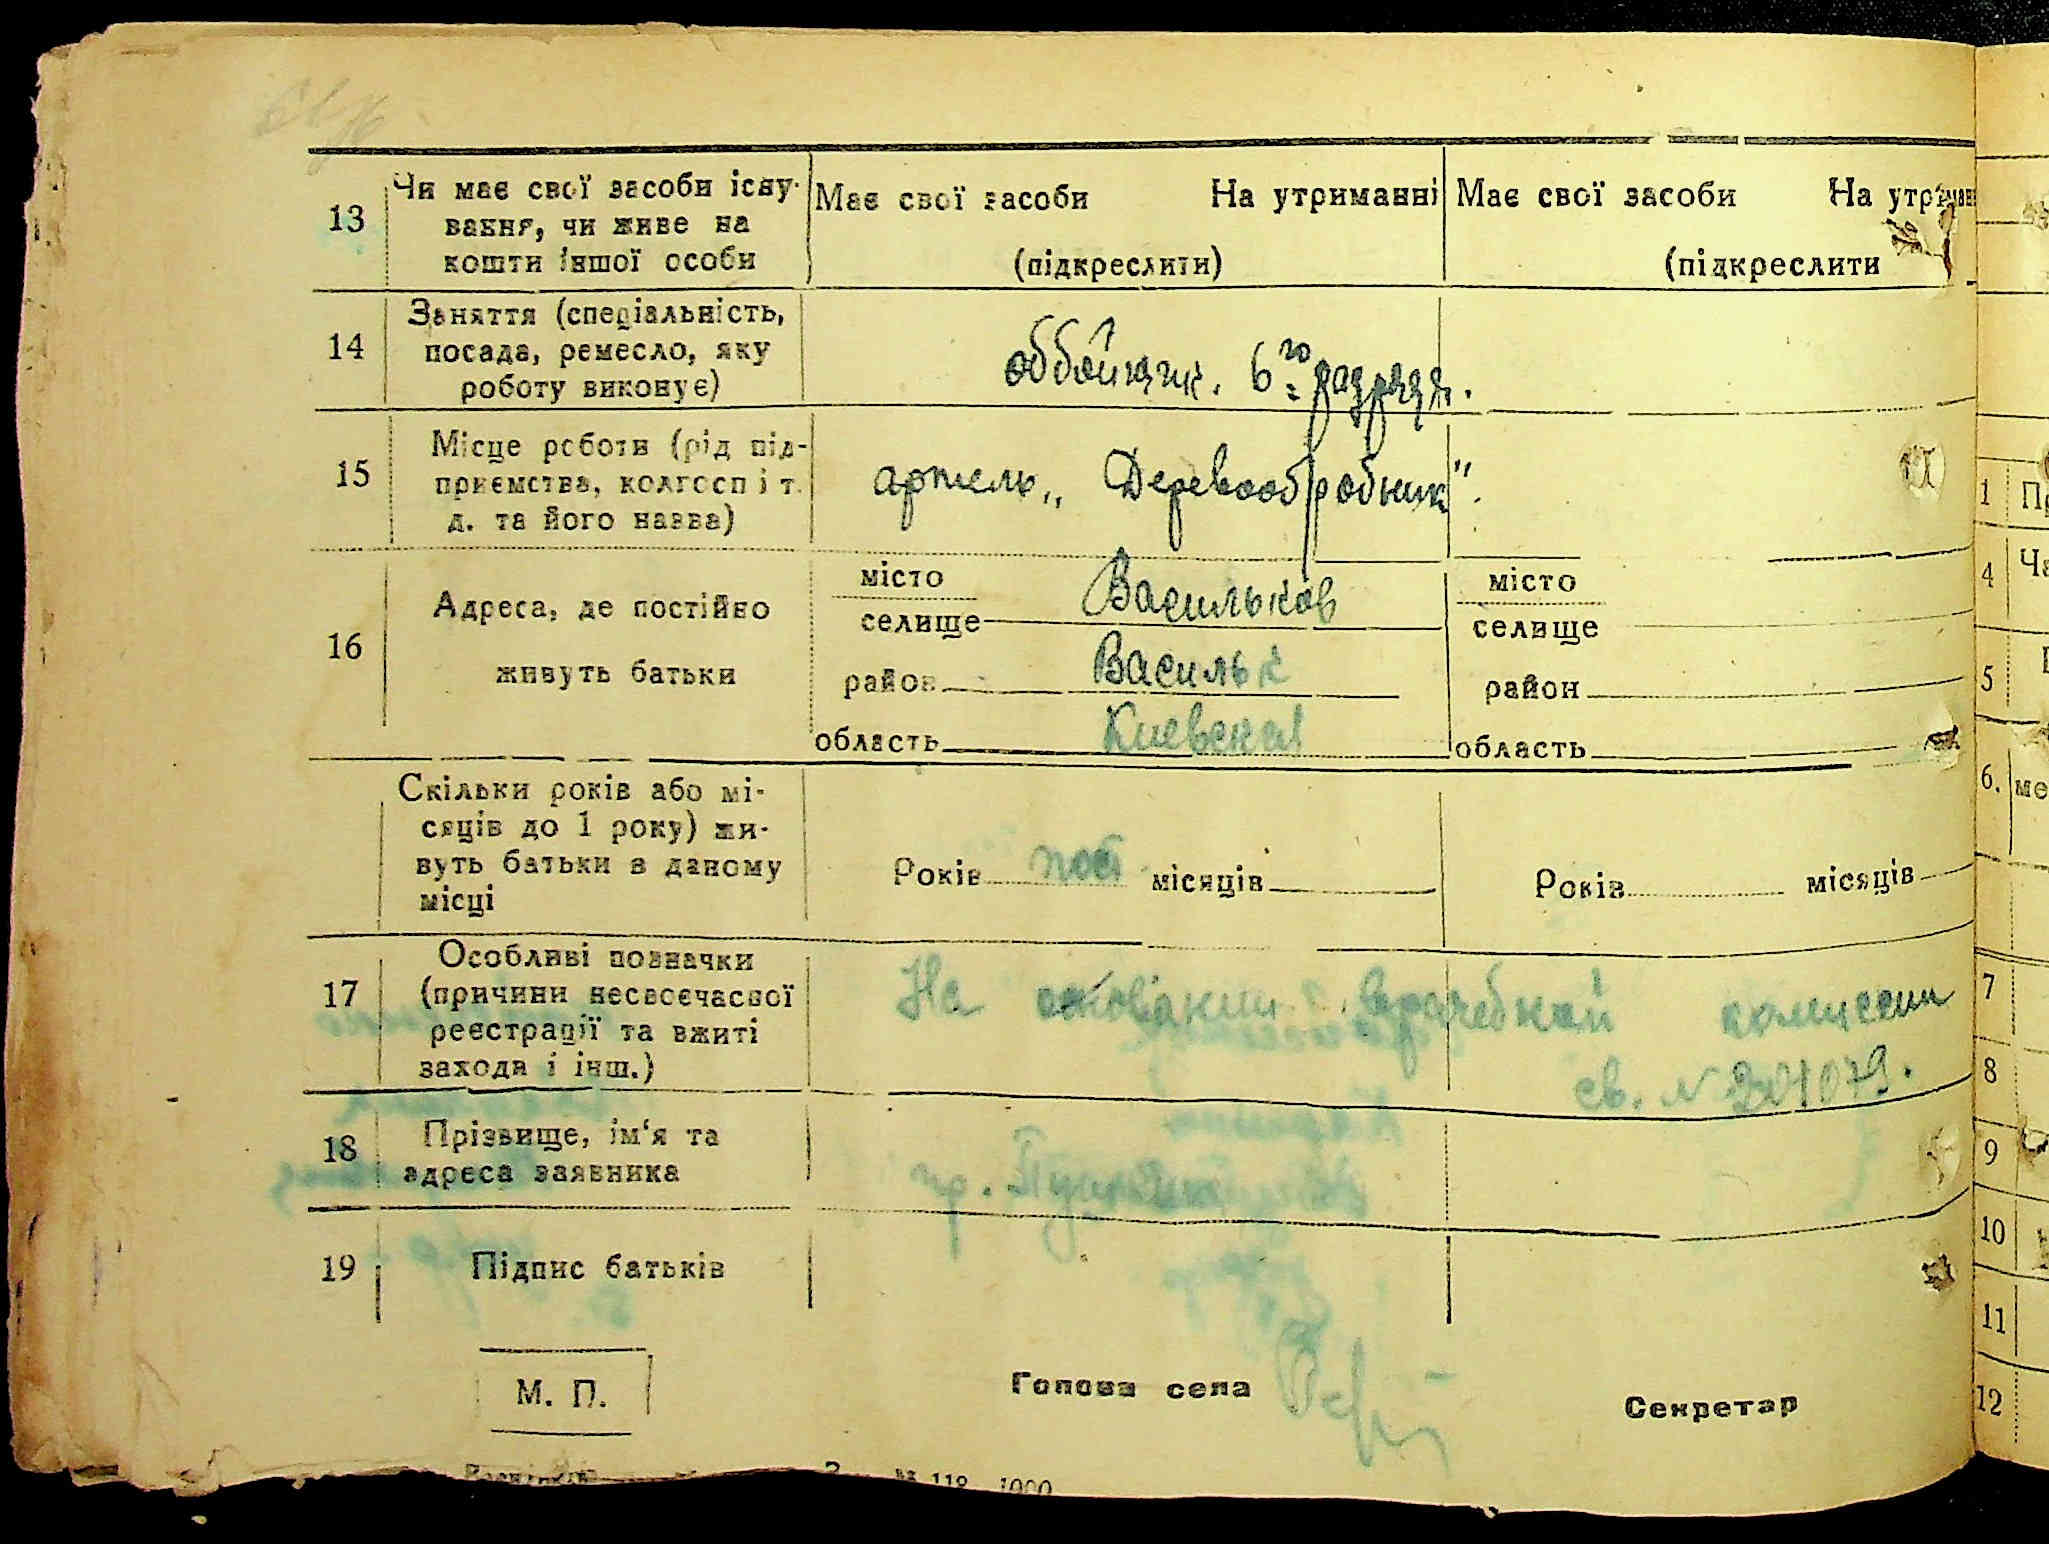 13 Чи має свої засоби існу-
вання, чи живе на
кошти іншої особи
Має свої засоби На утриманні
(підкреслити)
Має свої засоби На утриман
(підкреслити
14 Заняття (спеціальність,
посада, ремесло, яку
роботу виконує)
оббойщик. 6го разряда.
15 Місце роботи (рід під-
приємства, колгосп і т.
д. та його назва)
артель „Деревообробник".
16 Адреса, де постійно
живуть батьки
місто
селище Васильков
район Васильк
область Киевская
місто
селище
район
область
Скільки років або мі-
сяців до 1 року) жи-
вуть батьки в даному
місці
Років пост місяців
Років місяців
17 Особливі позначки
(причини несвоєчасної
реєстрації та вжиті
заходи і інш.)
На основании врачебной комиссии
св. № 201079.
18 Прізвище, ім'я та
адреса заявника
пр.
19 Підпис батьків
М. П.
Голова села
Секретар
118 1000
1
4
5
6.
7
8
9
10
11
12